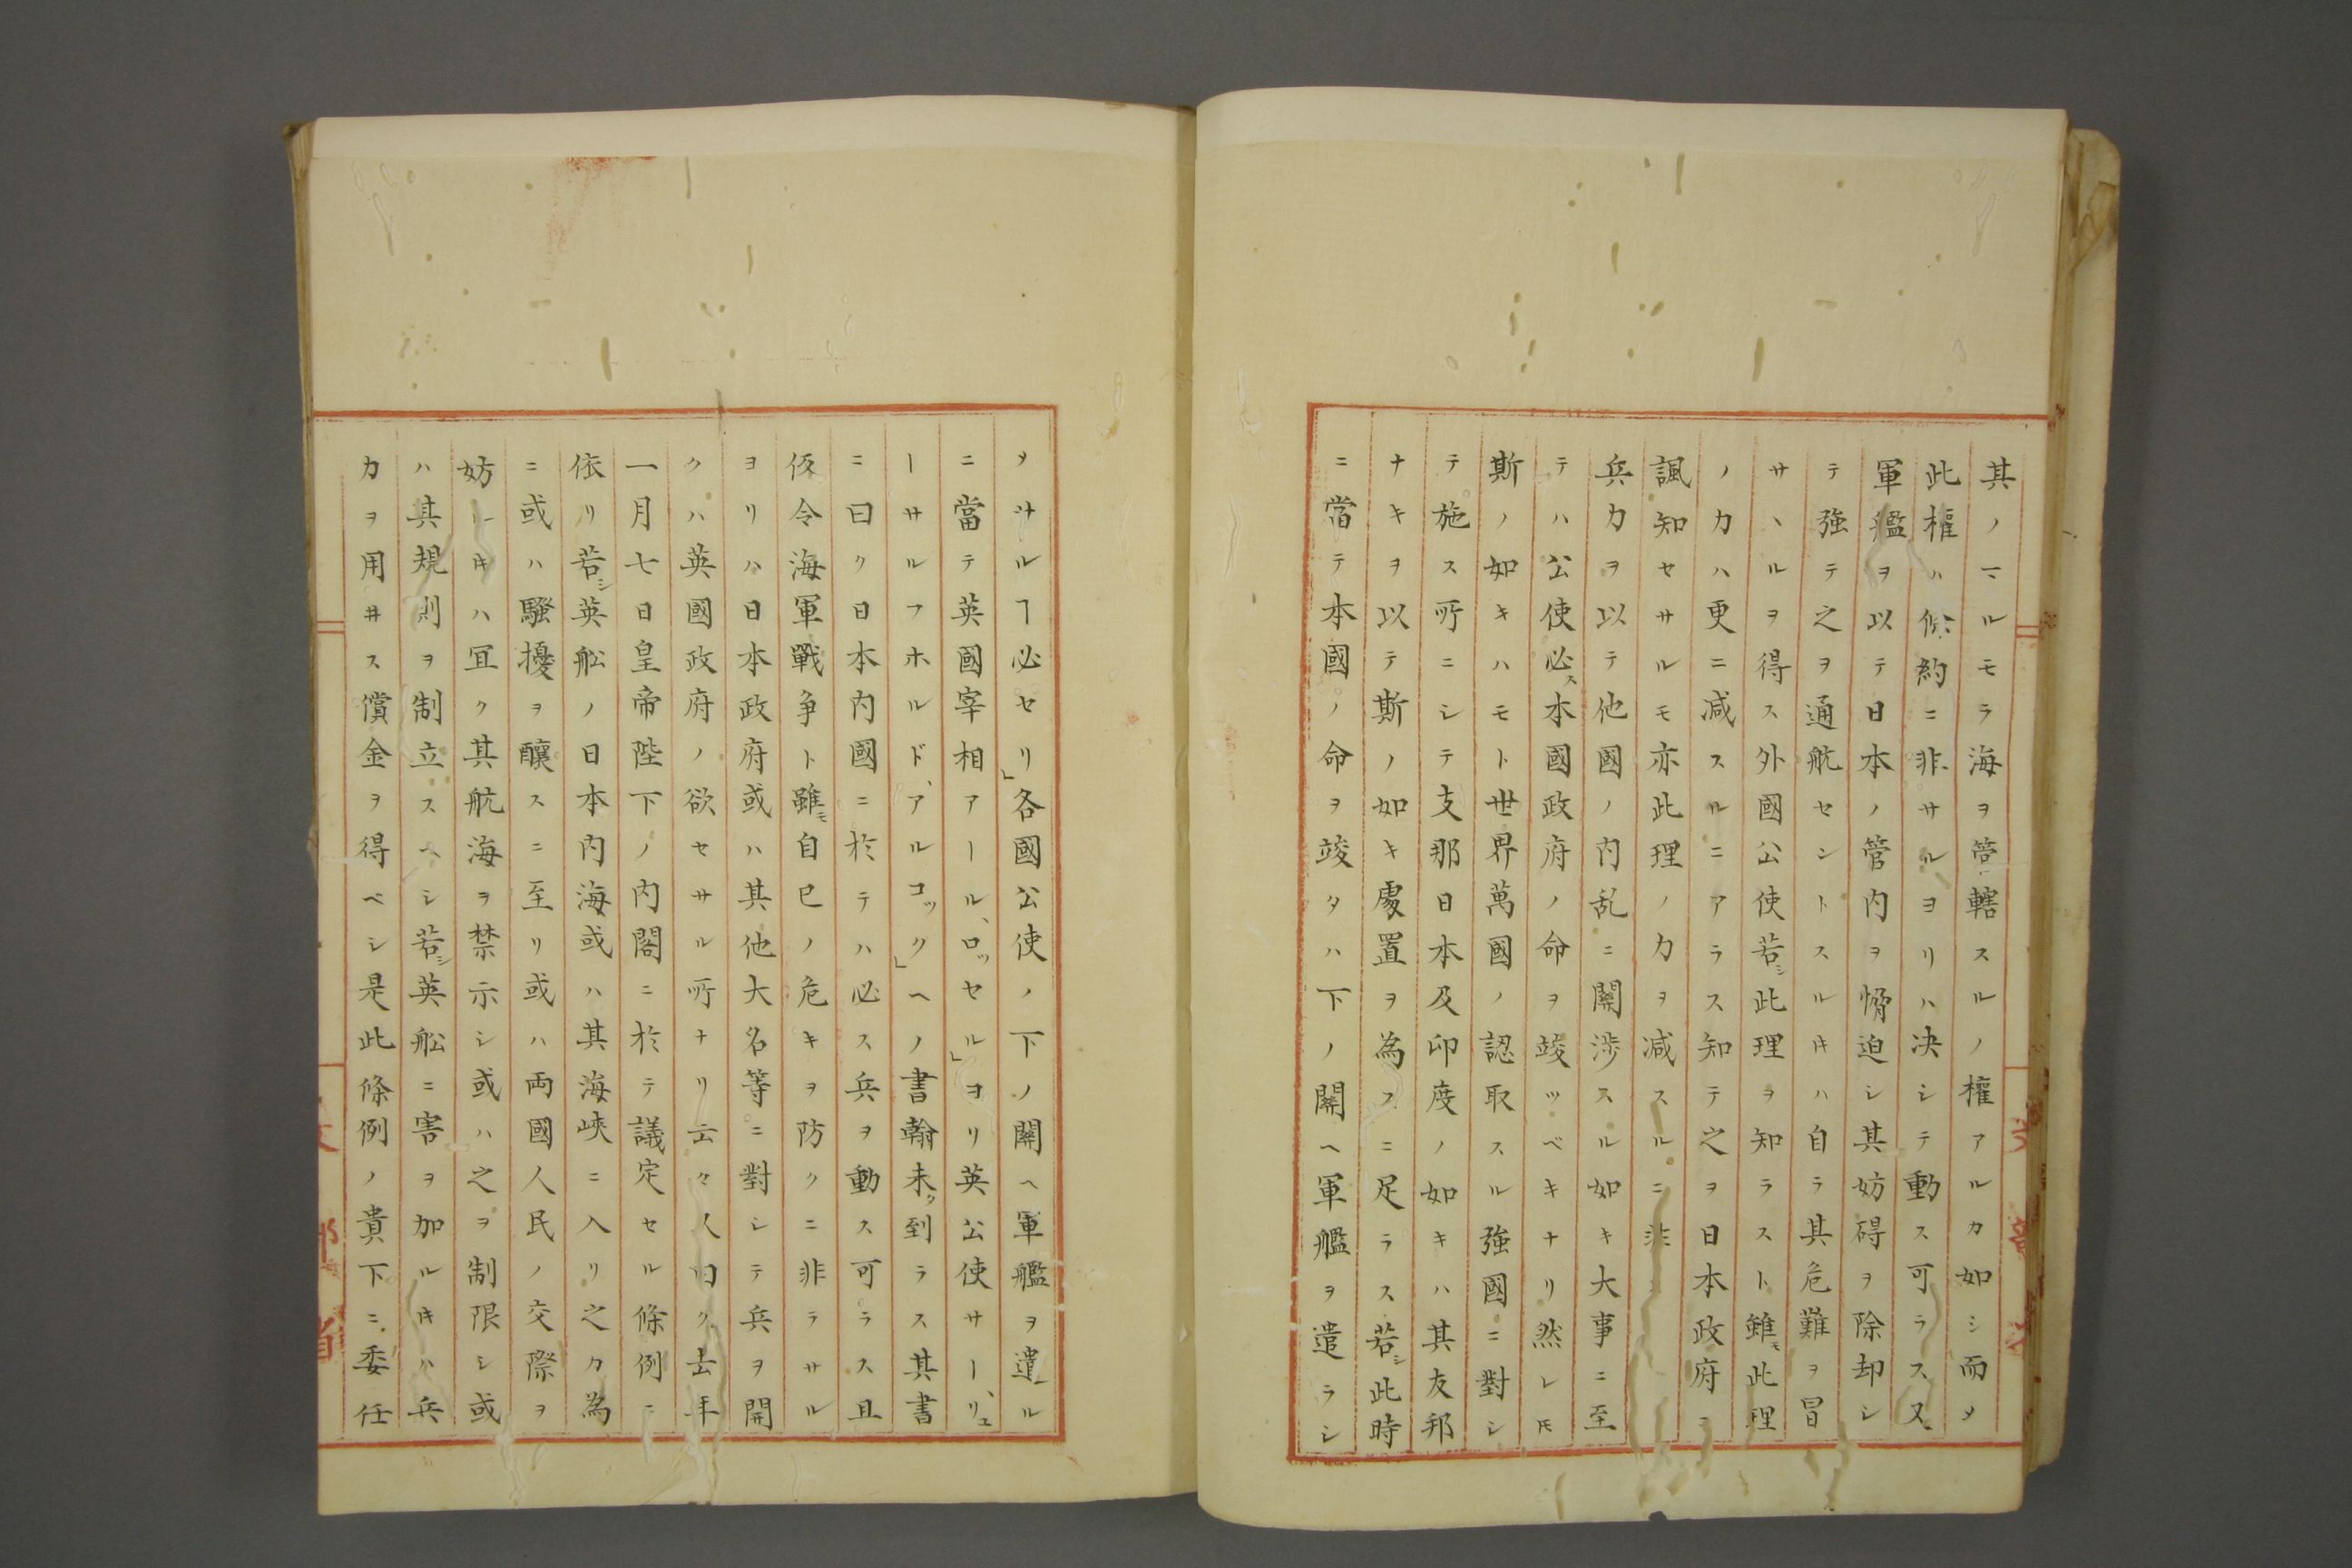 其ノマルモラ海ヲ管轄スルノ權アルカ如シ而メ
此權ハ條約ニ非サルヨリハ决シテ動ス可ラス又
軍艦ヲ以テ日本ノ管内ヲ脅迫シ其妨碍ヲ除却シ
テ強テ之ヲ通航セシトスル𪜈ハ自ラ其危難ヲ冒
サヽルヲ得ス外國公使若シ此理ヲ知ラスト雖モ此理
ノ力ハ更ニ减スルニアラス知テ之ヲ日本政府ニ
諷知セサルモ亦此理ノ力ヲ减スルニ非ス
兵力ヲ以テ他國ノ内乱ニ関渉スル如キ大事ニ至
テハ公使必ス本國政府ノ命ヲ竢ツベキナリ然レ𪜈
斯ノ如キハモト世界萬國ノ認取スル強國ニ對シ
テ施ス所ニシテ支那日本及印度ノ如キハ其友邦
ナキヲ以テ斯ノ如キ處置ヲ為スニ足ラス若シ此時
ニ當テ本國ノ命ヲ竢タハ下ノ関ヘ軍艦ヲ遣ラシ
ヲサルヿ必セリ」各國公使ノ下ノ関ヘ軍艦ヲ遣ル
ニ當テ英國宰相アール、ロッセル」ヨリ英公使サー、リュ
ーサルフホルド、アルコック」ヘノ書翰未タ到ラス其書
ニ曰ク日本内國ニ於テハ必ス兵ヲ動ス可ラス且
仮令海軍戰争ト雖モ自已ノ危キヲ防クニ非ラサル
ヨリハ日本政府或ハ其他大名等ニ對シテ兵ヲ開
クハ英國政府ノ欲セサル所ナリ云々人曰ク去年
一月七日皇帝陛下ノ内閣ニ於テ議定セル條例ニ
依リ若シ英舩ノ日本内海或ハ其海峽ニ入リ之カ為
ニ或ハ騒擾ヲ釀スニ至リ或ハ両國人民ノ交際ヲ
妨ル𪜈ハ冝ク其航海ヲ禁示シ或ハ之ヲ制限シ或
ハ其規則ヲ制立スヘシ若シ英舩ニ害ヲ加ル𪜈ハ兵
力ヲ用ヰス償金ヲ得ベシ是此條例ノ貴下ニ委任